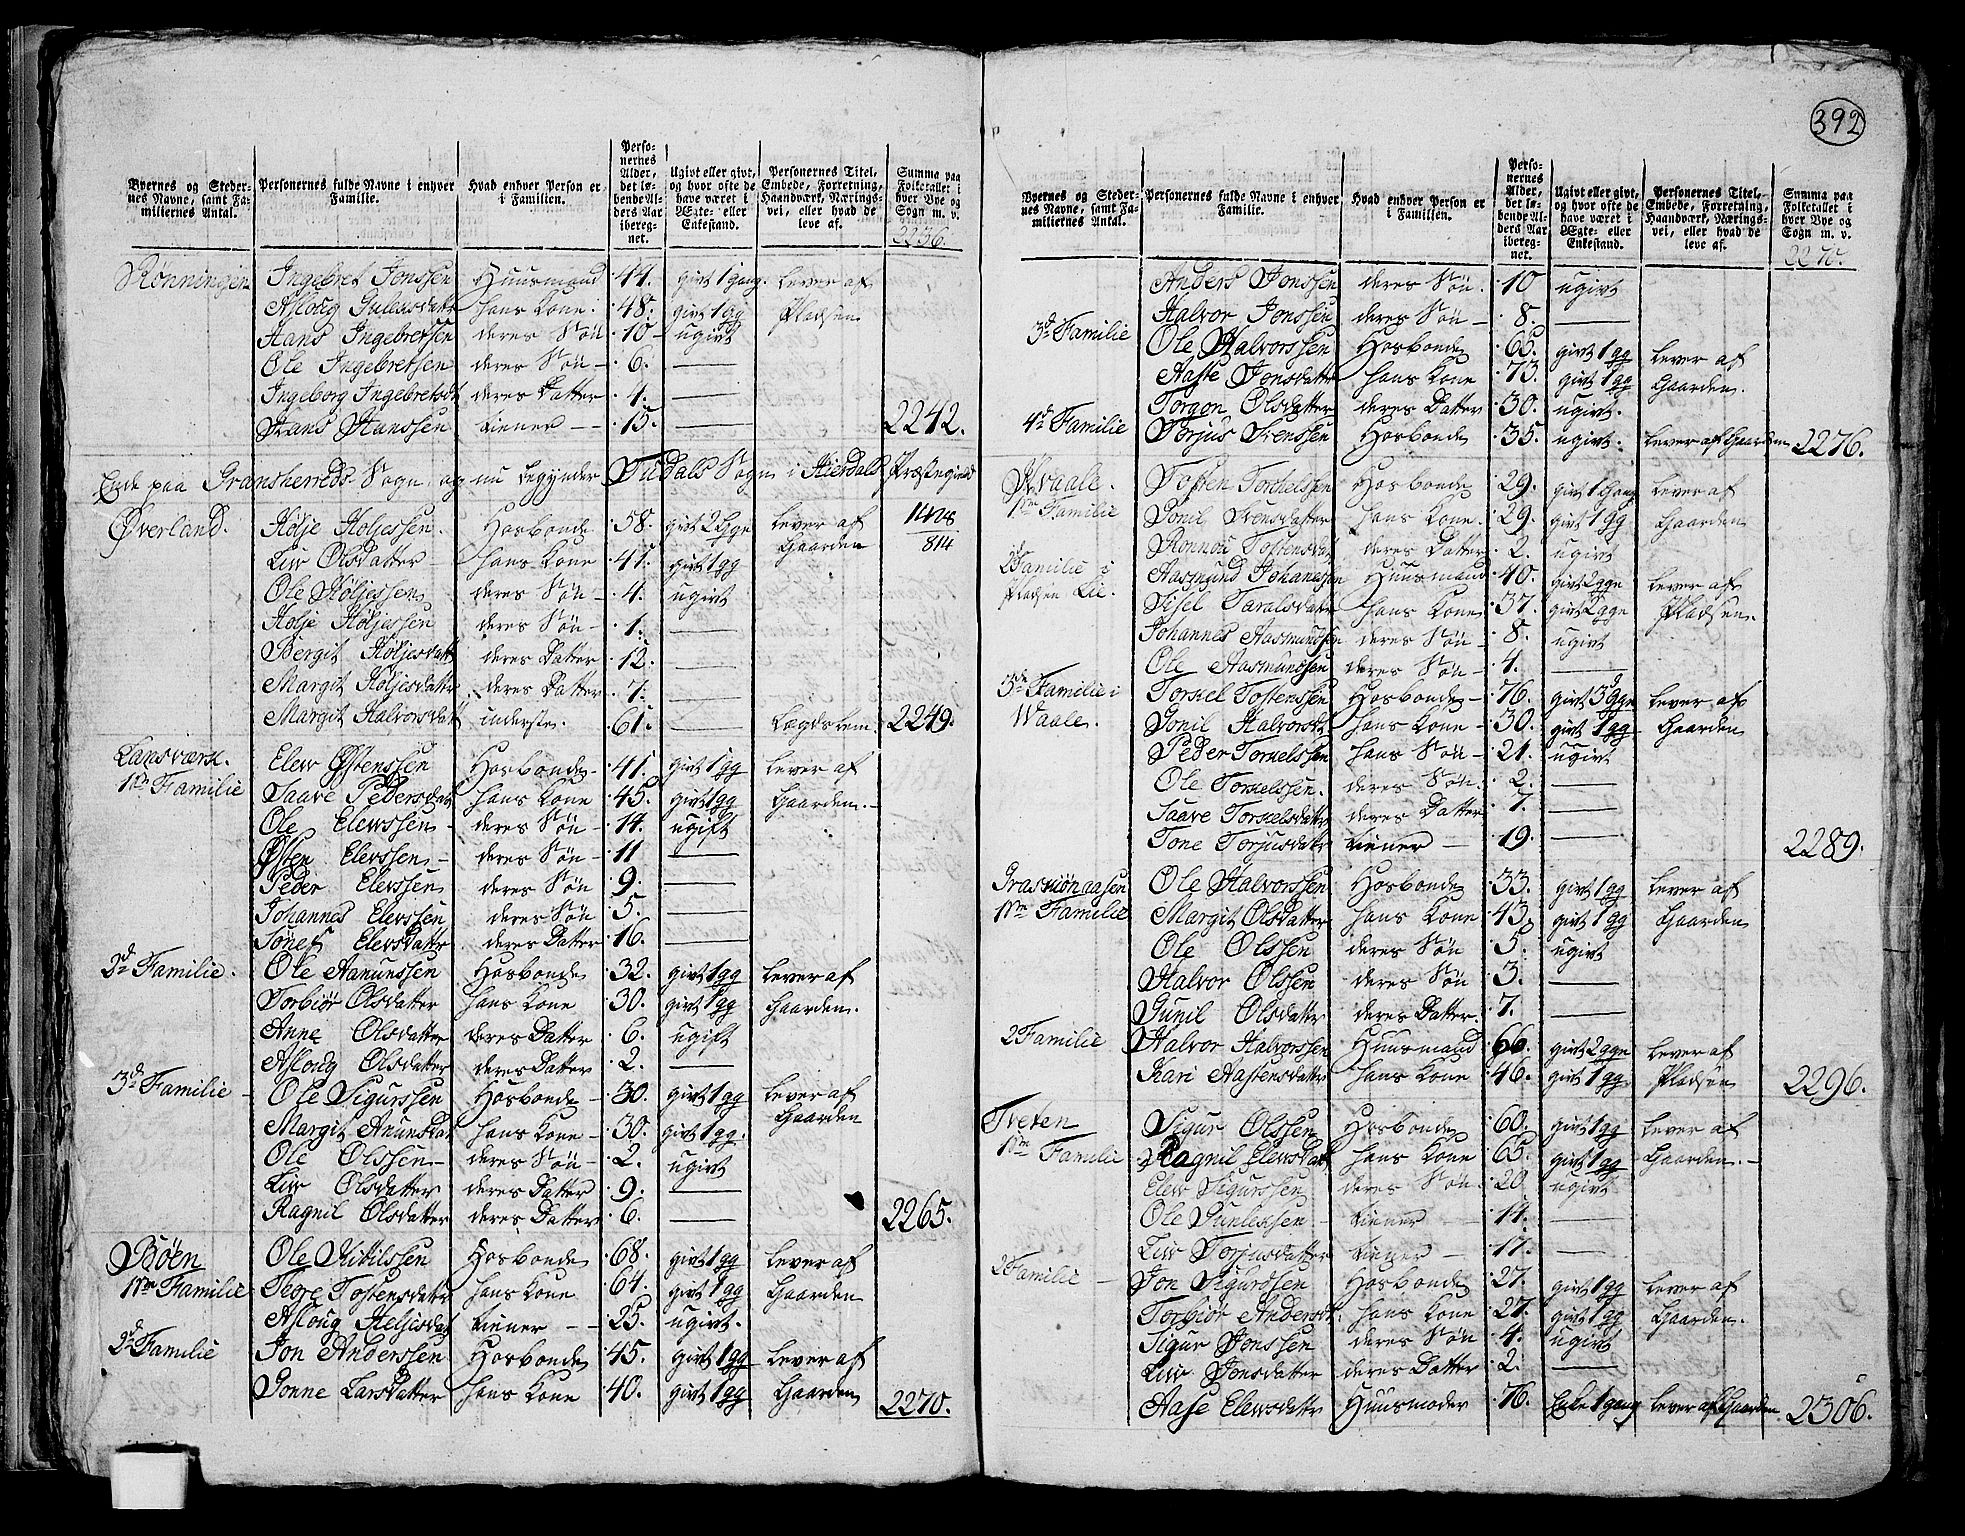 392
Byernes og Stedernes Navne, samt Familiernes Antal. | Personernes fulde Navne i enhver Familie. | Hvad enhver Person er i Familien. | Personernes Alder, det løbende Alders Aar iberegnet. | Ugivt eller givt, og hvor ofte de have været i Ægte- eller Enkestand. | Personernes Titel, Embede, Forretning, Haandværk, Næringsvei, eller hvad de leve af. | Summa paa Folketallet i hver Bye og Sogn m. v.
2236.
Rønningen Ingebret Jonssen Huusmand 44. givt 1 gang. Lever af
Asloug Gulexsdatr hans Kone. 48. givt 1 gg Pladsen
Hans Ingebretsen deres Søn 10 ugivt
Ole Ingebretsen deres Søn 6. —
Ingeborg Ingebretsdt deres Datter 4. —
Hans Hanssen tiener — 15. — 2242.
Ende paa Gransherreds Sogn, og nu begynder Tudals Sogn i Hierdals Præstegield
Øverland. Høljе Holjessen. Hosbonde 58. givt 2 Gge Lever af 1428
Liw Olsdatter hans Kone 41. givt 1 gg Gaarden 814
Ole Høljessen deres Søn 4. ugivt
Holje Høljessen deres Søn 1. —
Bergit Høljesdatt deres Datter 12. —
Margit Høljesdattr deres Datter 7. —
Margit Halvorsdatt inderste. 61. — Lægdslem. 2249.
Lansværk. Elew Østenssen Hosbonde 41. givt 1 gg Lever af
1ste Familie Taave Pedersdat hans Kone 45. givt 1 gg Gaarden.
Ole Elewssen deres Søn 14. ugift
Østen Elevssen deres Søn 11 —
Peder Elevssen deres Søn 9. —
Johannes Elevssen deres Søn 5. —
Elevsdattr deres Datter 16. —
2d Familie. Ole Aamunssen Hosbonde 32. givt 1 gg Lever af
Torbiør Olsdatter hans Kone 30. givt 1 gg Gaarden.
Anne Olsdatter deres Datter 6. ugift
Asloug Olsdatter deres Datter 2. —
3d Familie Ole Sigurssen Hosbonde 30. givt 1 gg Lever af
Margit Anunsdat hans Kone 30. givt 1 gg. Gaarden
Ole Olssen deres Søn 2. ugivt
Liw Olsdatter deres Datter 9. —
Ragnil Olsdatter deres Datter 6. — 2265.
Bøen Ole Kitilssen Hosbonde 68. givt 1 gg Lever af
1ste Familie Thore Tostensdatr hans Kone 64. givt 1 gg Gaarden
Asloug Heljesdat tiener 25. ugivt.
2d Familie Jon Anderssen Hosbonde 45. givt 1 gg Lever af
Gonne Larsdatter hans Kone 40. givt 1 gg Gaarden 2270.
Byernes og Stedernes Navne, samt Familiernes Antal. | Personernes fulde Navne i enhver Familie. | Hvad enhver Person er i Familien. | Personernes Alder, det løbende Alders Aar iberegnet. | Ugivt eller givt, og hvor ofte de have været i Ægte- eller Enkestand. | Personernes Titel, Embede, Forretning, Haandværk, Næringsvei, eller hvad de leve af. | Summa paa Folketallet i hver Bye og Sogn m. v.
2270.
Anders Jonssen deres Søn. 10 ugivt
Halvor Jonssen deres Søn 8. —
3d Familie Ole Halvorssen Hosbonde 65. givt 1 gg Lever af
Aasse Jonsdattr hans Kone 73. givt 1 gg Gaarden.
Torgon Olsdatter deres Datter 30. ugivt.
4d Familie Torjus Svenssen Hosbonde 35. ugivt. Lever af Gaarden 2276.
Kvaale. Tosten Torchelssen Hosbonde 29. givt 1 Gang Lever af
1ste Familie Gonil Svensdatter hans Kone. 29. givt 1 gg Gaarden
Ronnou Tostensdat deres Datter 2. ugivt
2d Familie i Aasmund Johanessen Huusmand 40. givt 2gge Lever af
Pladsen Lie. Sisel Taralsdatr hans Kone 37. givt 2gge Pladsen.
Johannes Aasmundsen deres Søn 8. ugivt
Ole Aasmundsen deres Søn 4. —
3de Familie i Torkel Tostenssen Hosbonde 76. givt 3 Gge Lever af
Waale. Gonil Halvorsdt hans Kone 30. givt 1 gg Gaarden
Peder Torkelssen hans Søn 21. ugivt
Ole Torkelssen. deres Søn. 2. —
Taave Torkelsdatr deres Datter 7. —
Tone Torjusdatr tiener 19. — 2289.
Grasmønaasen Ole Halvorssen Hosbonde 33. givt 1 gg Lever af
1ste Familie Margit Olsdatter hans Kone 43. givt 1 gg Gaarden
Ole Olssen deres Søn 5. ugivt
Halvor Olssen deres Søn 3. —
Gunil Olsdatr deres Datter. 7. —
2 Familie Halvor Halvorssen Huusmand 66. givt 2gge Lever af
Kari Aastensdattr hans Kone 46. givt 1 gg Pladsen 2296.
Tveten Sigur Olssen Hosbonde 60. givt 1 gg Lever af
1ste Familie Ragnil Elewsdatt hans Kone 65. givt 1 gg Gaarden.
Elew Sigurssen deres Søn 20 ugivt
Ole Gunlexsen tiener 14. —
Liw Torjusdatter tiener 17. —
2 Familie Jon Sigurdssen Hosbonde 27. givt 1 gg Lever af
Torbiør Andersdt. hans Kone 27. givt 1 gg Gaarden.
Sigur Jonssen deres Søn 4. ugivt
Liw Jonsdatter deres Datter 2. —
Aase Elewsdattr Huusmoder 76. Enke 1 gang Lever af Gaarden 2306.